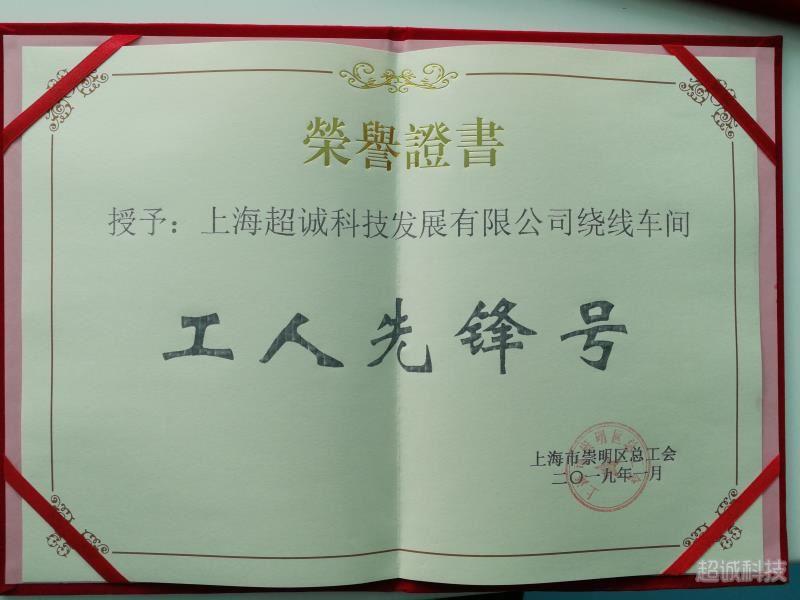 榮譽證書
授予：上海超诚科技发展有限公司绕线车间
工人先锋号
上海市崇明区总工会
二〇一九年一月
超诚科技